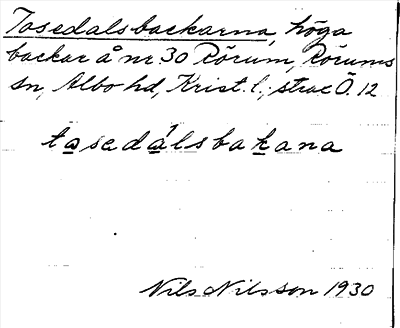 Tosedalsbackarna, höga
backar å nr 30 Rörum, Rörums
sn, Albo hd, Krist. l., strax Ö. 12
tosedálsbakana
Nils Nilsson 1930